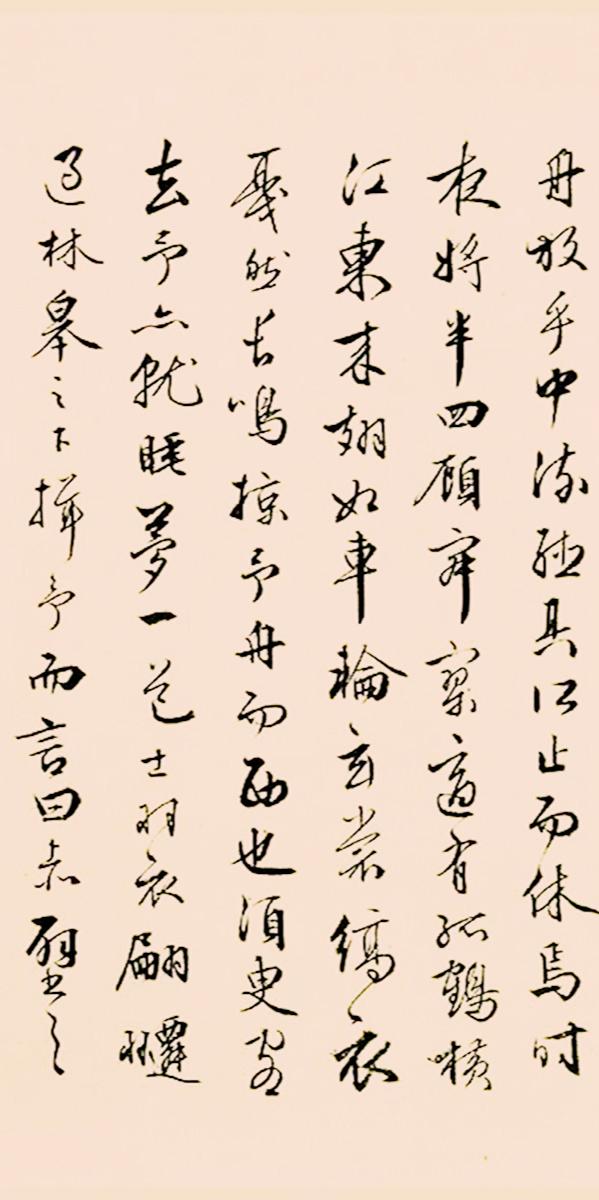 舟放乎中流聽其所止而休焉時
夜將半四顧寂寥適有孤鶴橫
江東來翅如車輪玄裳縞衣
戛然長鳴掠予舟而西也須臾客
去予亦就睡夢一道士羽衣翩躚
過林皋之下揖予而言曰赤壁之